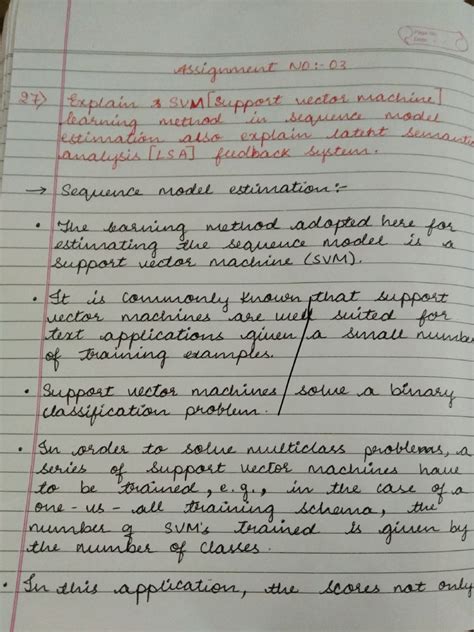 Assignment NO:- 03
27) Explain & SVM [Support vector machine]
learning method in sequence model
estimation also explain latent semantic
analysis [LSA] feedback system.
→ Sequence model estimation:-
• The learning method adopted here for
estimating the sequence model is a
support vector machine (SVM).
• It is commonly known that support
vector machines are well suited for
text applications given a small number
of training examples.
• Support vector machines solve a binary
classification problem.
• In order to solve multiclass problems, a
series of support vector machines have
to be trained, e.g., in the case of a
one-us-all training schema, the
number of SVM's trained is given by
the number of classes.
• In this application, the scores not only